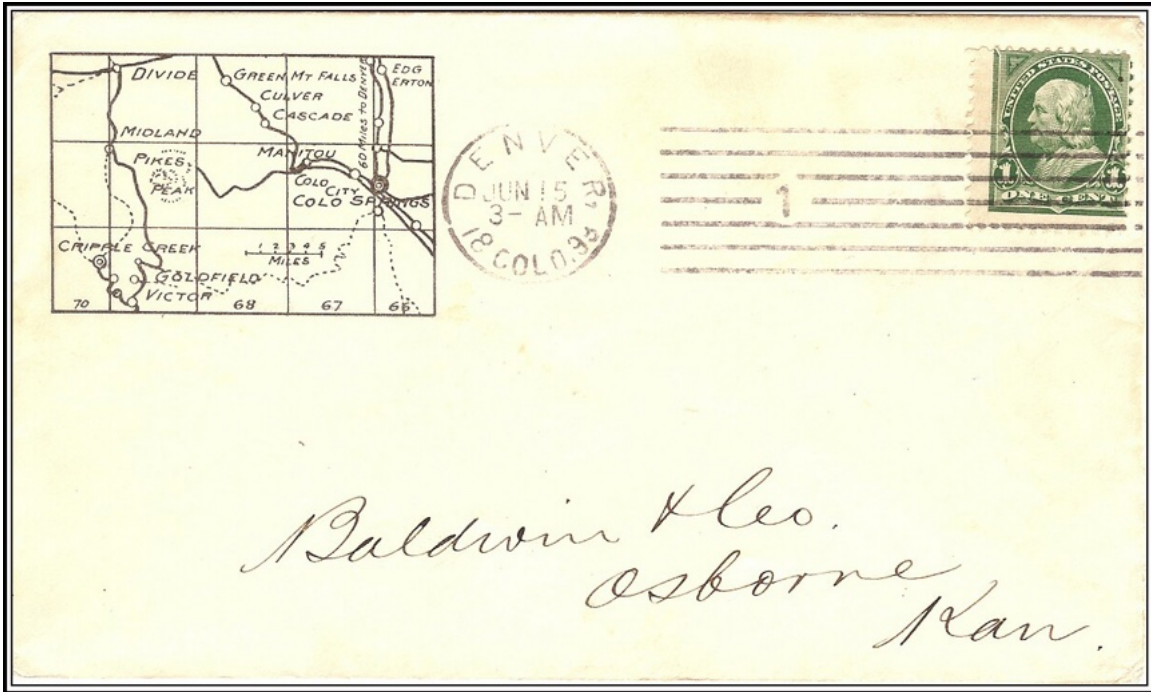 DIVIDE
GREEN MT FALLS
EDG
ERTON
CULVER
CASCADE
60 MILES TO DENVER
MIDLAND
PIKES
PEAK
MANITOU
COLO
CITY
COLO SPRINGS
CRIPPLE CREEK
1 2 3 4 5
MILES
GOLDFIELD
VICTOR
70 68 67 66
DENVER,
JUN 15
3- AM
18 COLO. 98
1
UNITED STATES POSTAGE
1 1
ONE CENT
Baldwin & Co.
Osborne
Kan.